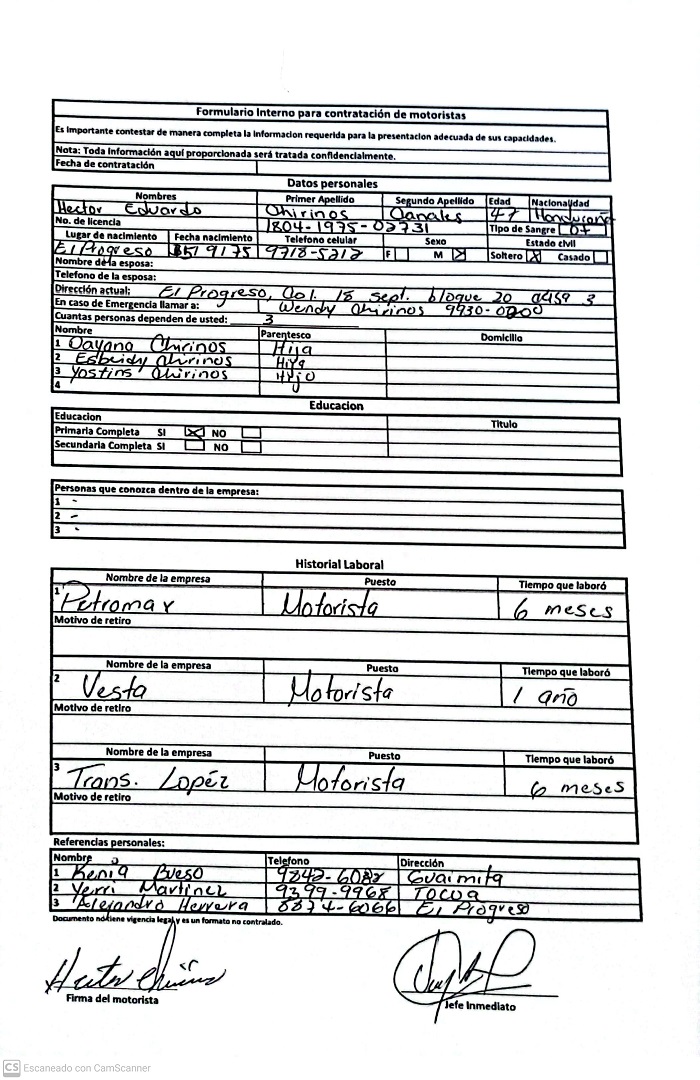 Formulario Interno para contratación de motoristas
Es Importante contestar de manera completa la informacion requerida para la presentacion adecuada de sus capacidades.
Nota: Toda información aquí proporcionada será tratada confidencialmente.
Fecha de contratación
Datos personales
Nombres Primer Apellido Segundo Apellido Edad Nacionalidad
Hector Eduardo Chirinos Canales 47 Hondureña
No. de licencia 1804-1975-02731 Tipo de Sangre O+
Lugar de nacimiento Fecha nacimiento Telefono celular Sexo Estado civil
El Progreso 9175 9718-5212 F M Soltero X Casado
Nombre de la esposa:
Telefono de la esposa:
Dirección actual: El Progreso, Col. 18 sept. bloque 20 casa 3
En caso de Emergencia llamar a: Wendy Chirinos 9930-0200
Cuantas personas dependen de usted: 3
Nombre Parentesco Domicilio
1 Dayana Chirinos Hija
2 Chirinos Hija
3 Yostins Chirinos Hijo
4
Educacion
Educacion Titulo
Primaria Completa SI X NO
Secundaria Completa SI NO
Personas que conozca dentro de la empresa:
1 -
2 -
3 -
Historial Laboral
Nombre de la empresa Puesto Tiempo que laboró
1 Petromax Motorista 6 meses
Motivo de retiro
Nombre de la empresa Puesto Tiempo que laboró
2 Vesta Motorista 1 año
Motivo de retiro
Nombre de la empresa Puesto Tiempo que laboró
3 Trans. Lopéz Motorista 6 meses
Motivo de retiro
Referencias personales:
Nombre Telefono Dirección
1 Kenia Bueso 9842-6082 Guaimita
2 Yerri Martinez 9399-9968 Tocoa
3 Alejandro Herrera 8874-6066 El Progreso
Documento no tiene vigencia legal y es un formato no contralado.
Hector Chirinos
Firma del motorista Jefe Inmediato
CS Escaneado con CamScanner